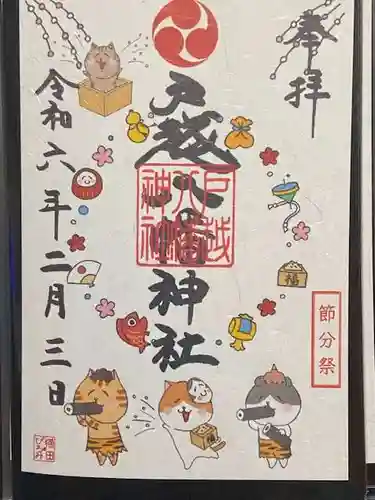 奉拝
戸越八幡神社
戸越八幡神社
令和六年二月三日
節分祭
福